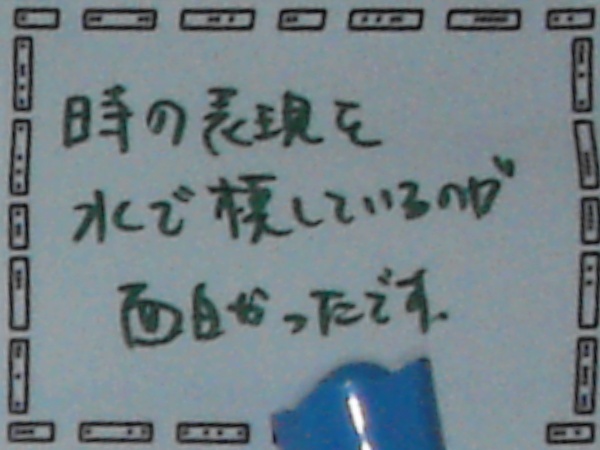 時の表現を
水で模しているのが
面白かったです。